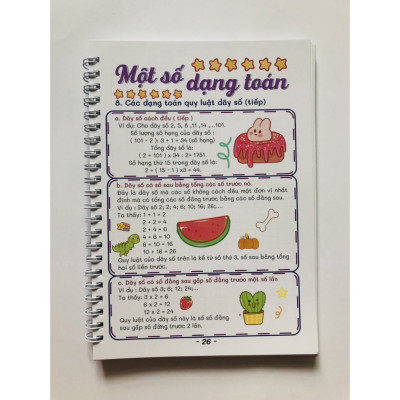 Một số dạng toán
8. Các dạng toán quy luật dãy số (tiếp)
a. Dãy số cách đều ( tiếp )
Ví dụ: Cho dãy số 2, 5, 8 ,11 ,14 ,...,101.
Số lượng số hạng của dãy số :
( 101 - 2 ): 3 + 1 = 34 (số hạng)
Tổng dãy số là:
( 2 + 101 ) x 34 : 2= 1751.
Số hạng thứ 15 trong dãy số là:
2 + ( 15 - 1 ) x3 = 44.
b. Dãy số có số sau bằng tổng các số trước nó.
Đây là dãy số mà các số không cách đều một đơn vị nhất
định mà có tổng các số đằng trước bằng các số đằng sau.
Ví dụ : Dãy số 2; 2; 4; 6; 10; 16; 26;...
Ta thấy: 1 + 1 = 2
2 + 2 = 4
2 + 4 = 6
4 + 6 = 10
6 + 10 = 16
10 + 16 = 26
Quy luật của dãy số trên là kể từ số thứ 3, số sau bằng tổng
hai số liền trước.
c. Dãy số có số đằng sau gấp số đằng trước một số lần
Ví dụ : Dãy số 3; 6; 12; 24;...
Ta thấy: 3 x 2 = 6
6 x 2 = 12
12 x 2 = 24
Quy luật của dãy số này là số số đằng
sau gấp số đằng trước 2 lần.
- 26 -